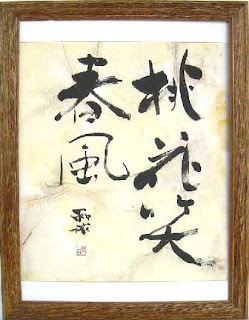 桃花笑
春風